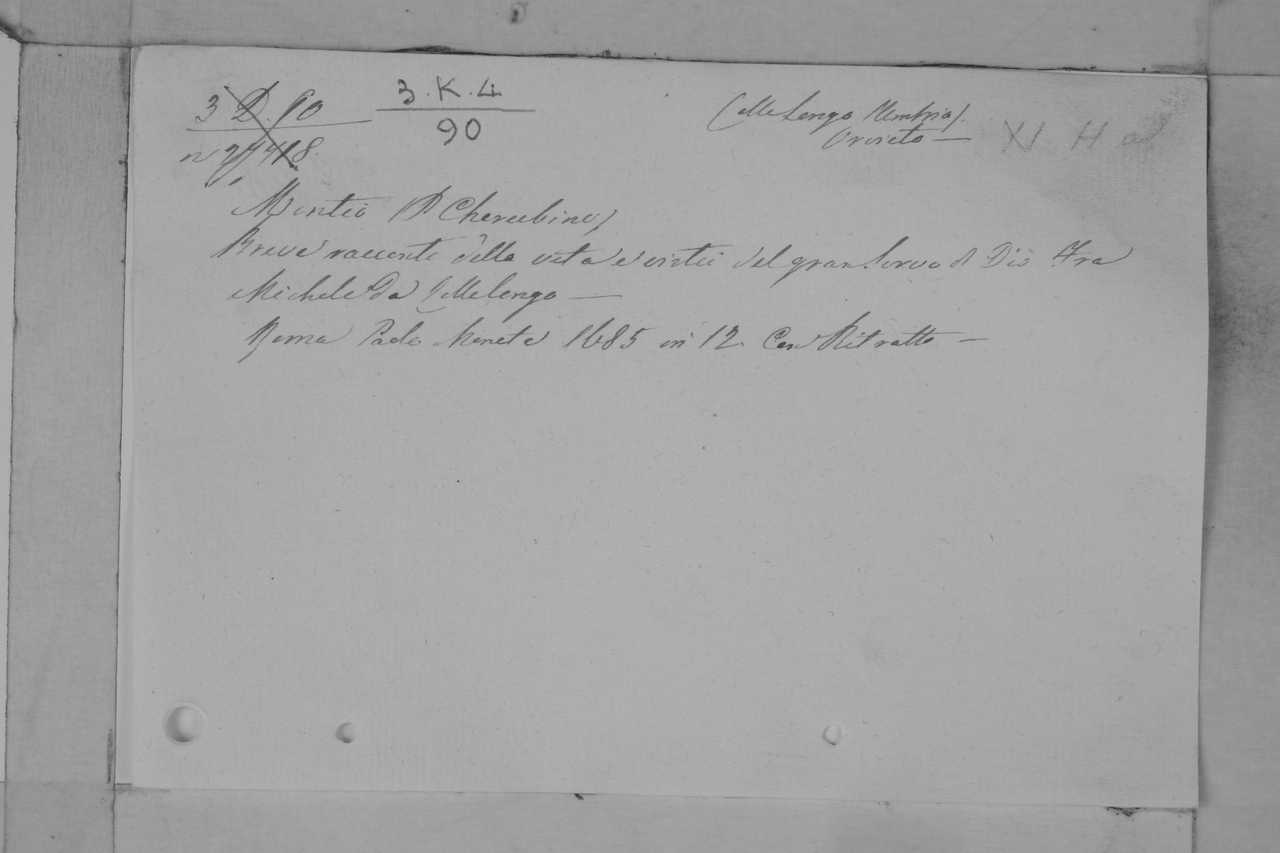 3 D. 90
3.K.4
90
Collelongo Umbria).
Orvieto —
XI H a
Montio (P Cherubino)
Breve racconto della vita e virtù del gran Servo di Dio Fra
Michele da Collelongo —
Roma Paolo Moneta 1685 in 12. Con Ritratto —